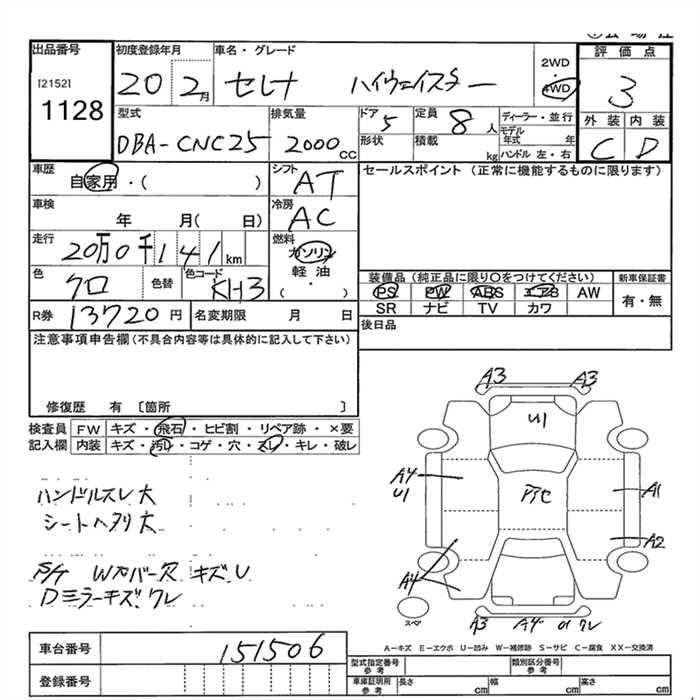 出品番号 初度登録年月 車名・グレード 評価点
[2152] 1128 20 2月 セレナ ハイウェイスター 2WD 4WD 3
型式 排気量 ドア 定員 ディーラー・並行 外装 内装
DBA-CNC25 2000CC 5 8人 モデル年式 年 C D
形状 積載 kg ハンドル 左・右
車歴 自家用・( ) シフト AT セールスポイント (正常に機能するものに限ります)
車検 年 月( 日) 冷房 AC
走行 20万0千141km 燃料 ガソリン 軽油 ( ・ )
色 クロ 色替 色コード KH3 装備品 (純正品に限り〇をつけてください) 新車保証書
PS PW ABS エアB AW 有・無
SR ナビ TV カワ
R券 13720円 名変期限 月 日 後日品
注意事項申告欄(不具合内容等は具体的に記入して下さい)
修復歴 有 〔箇所 〕
検査員 FW キズ・飛石・ヒビ割・リペア跡・×要
記入欄 内装 キズ・汚レ・コゲ・穴・スレ・キレ・破レ
A3 A3
U1
A4 U1 A1
A2
A4
スペア
A3 A4 U1 ワレ
ハンドルスレ大
シートヘタリ大
Wカバー欠 キズ.U
Dミラーキズ.ワレ
車台番号 151506
登録番号
A-キズ E-エクボ U-凹み W-補修跡 S-サビ C-腐食 XX-交換済
型式指定番号 参考 類別区分番号 参考
車庫証明用 参考 長さ cm 幅 cm 高さ cm